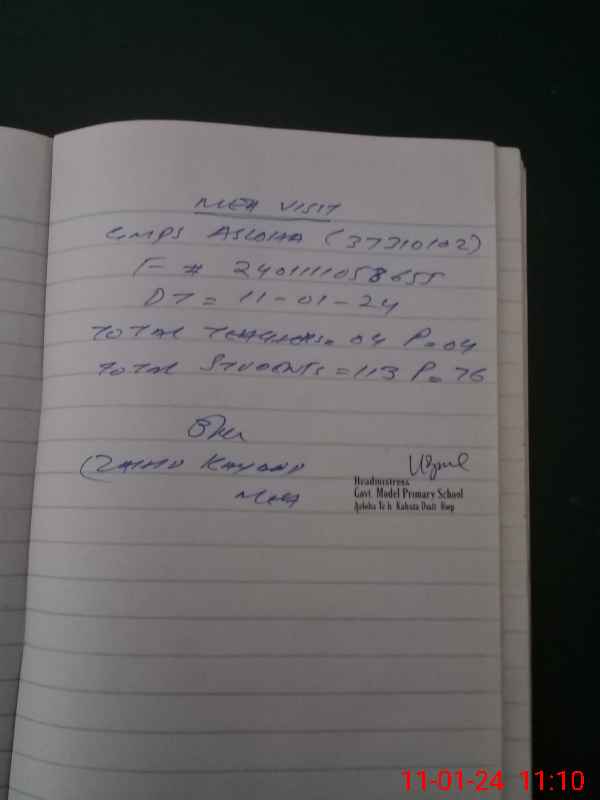 MEA VISIT
GMPS ASLOHA (37310102)
F # 2401111058655
DT = 11-01-24
TOTAL TEACHERS = 04 P = 04
TOTAL STUDENTS = 113 P = 76
MEA
Headmistress
Govt. Model Primary School
Asloha Teh Kahuta Distt Rwp
11-01-24 11:10